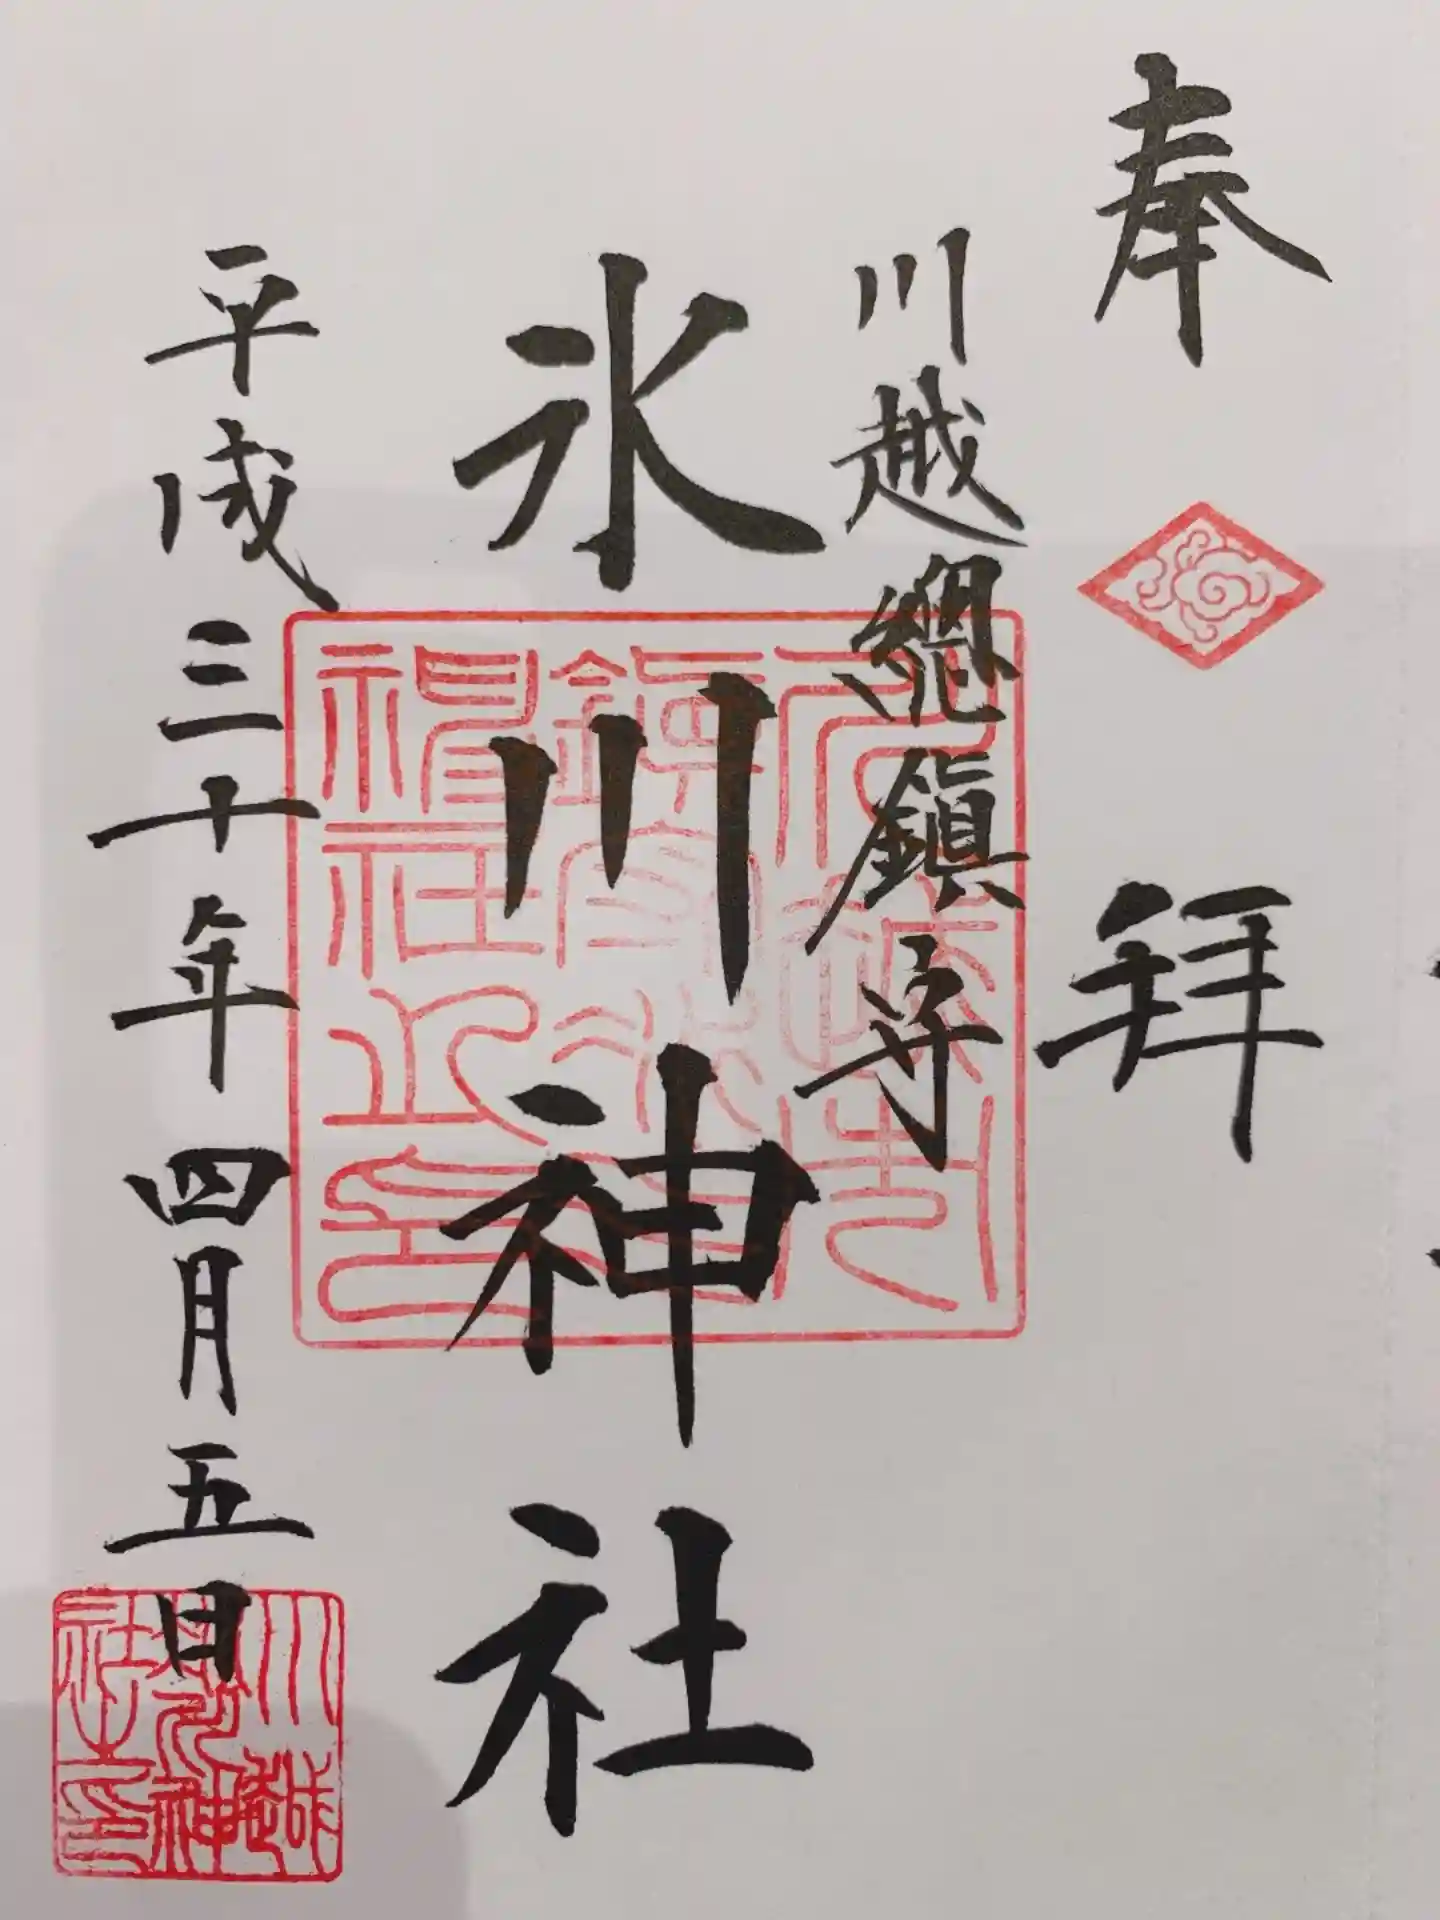 奉拜
川越總鎮守
氷川神社
平成三十年四月五日
川越氷川神社之印